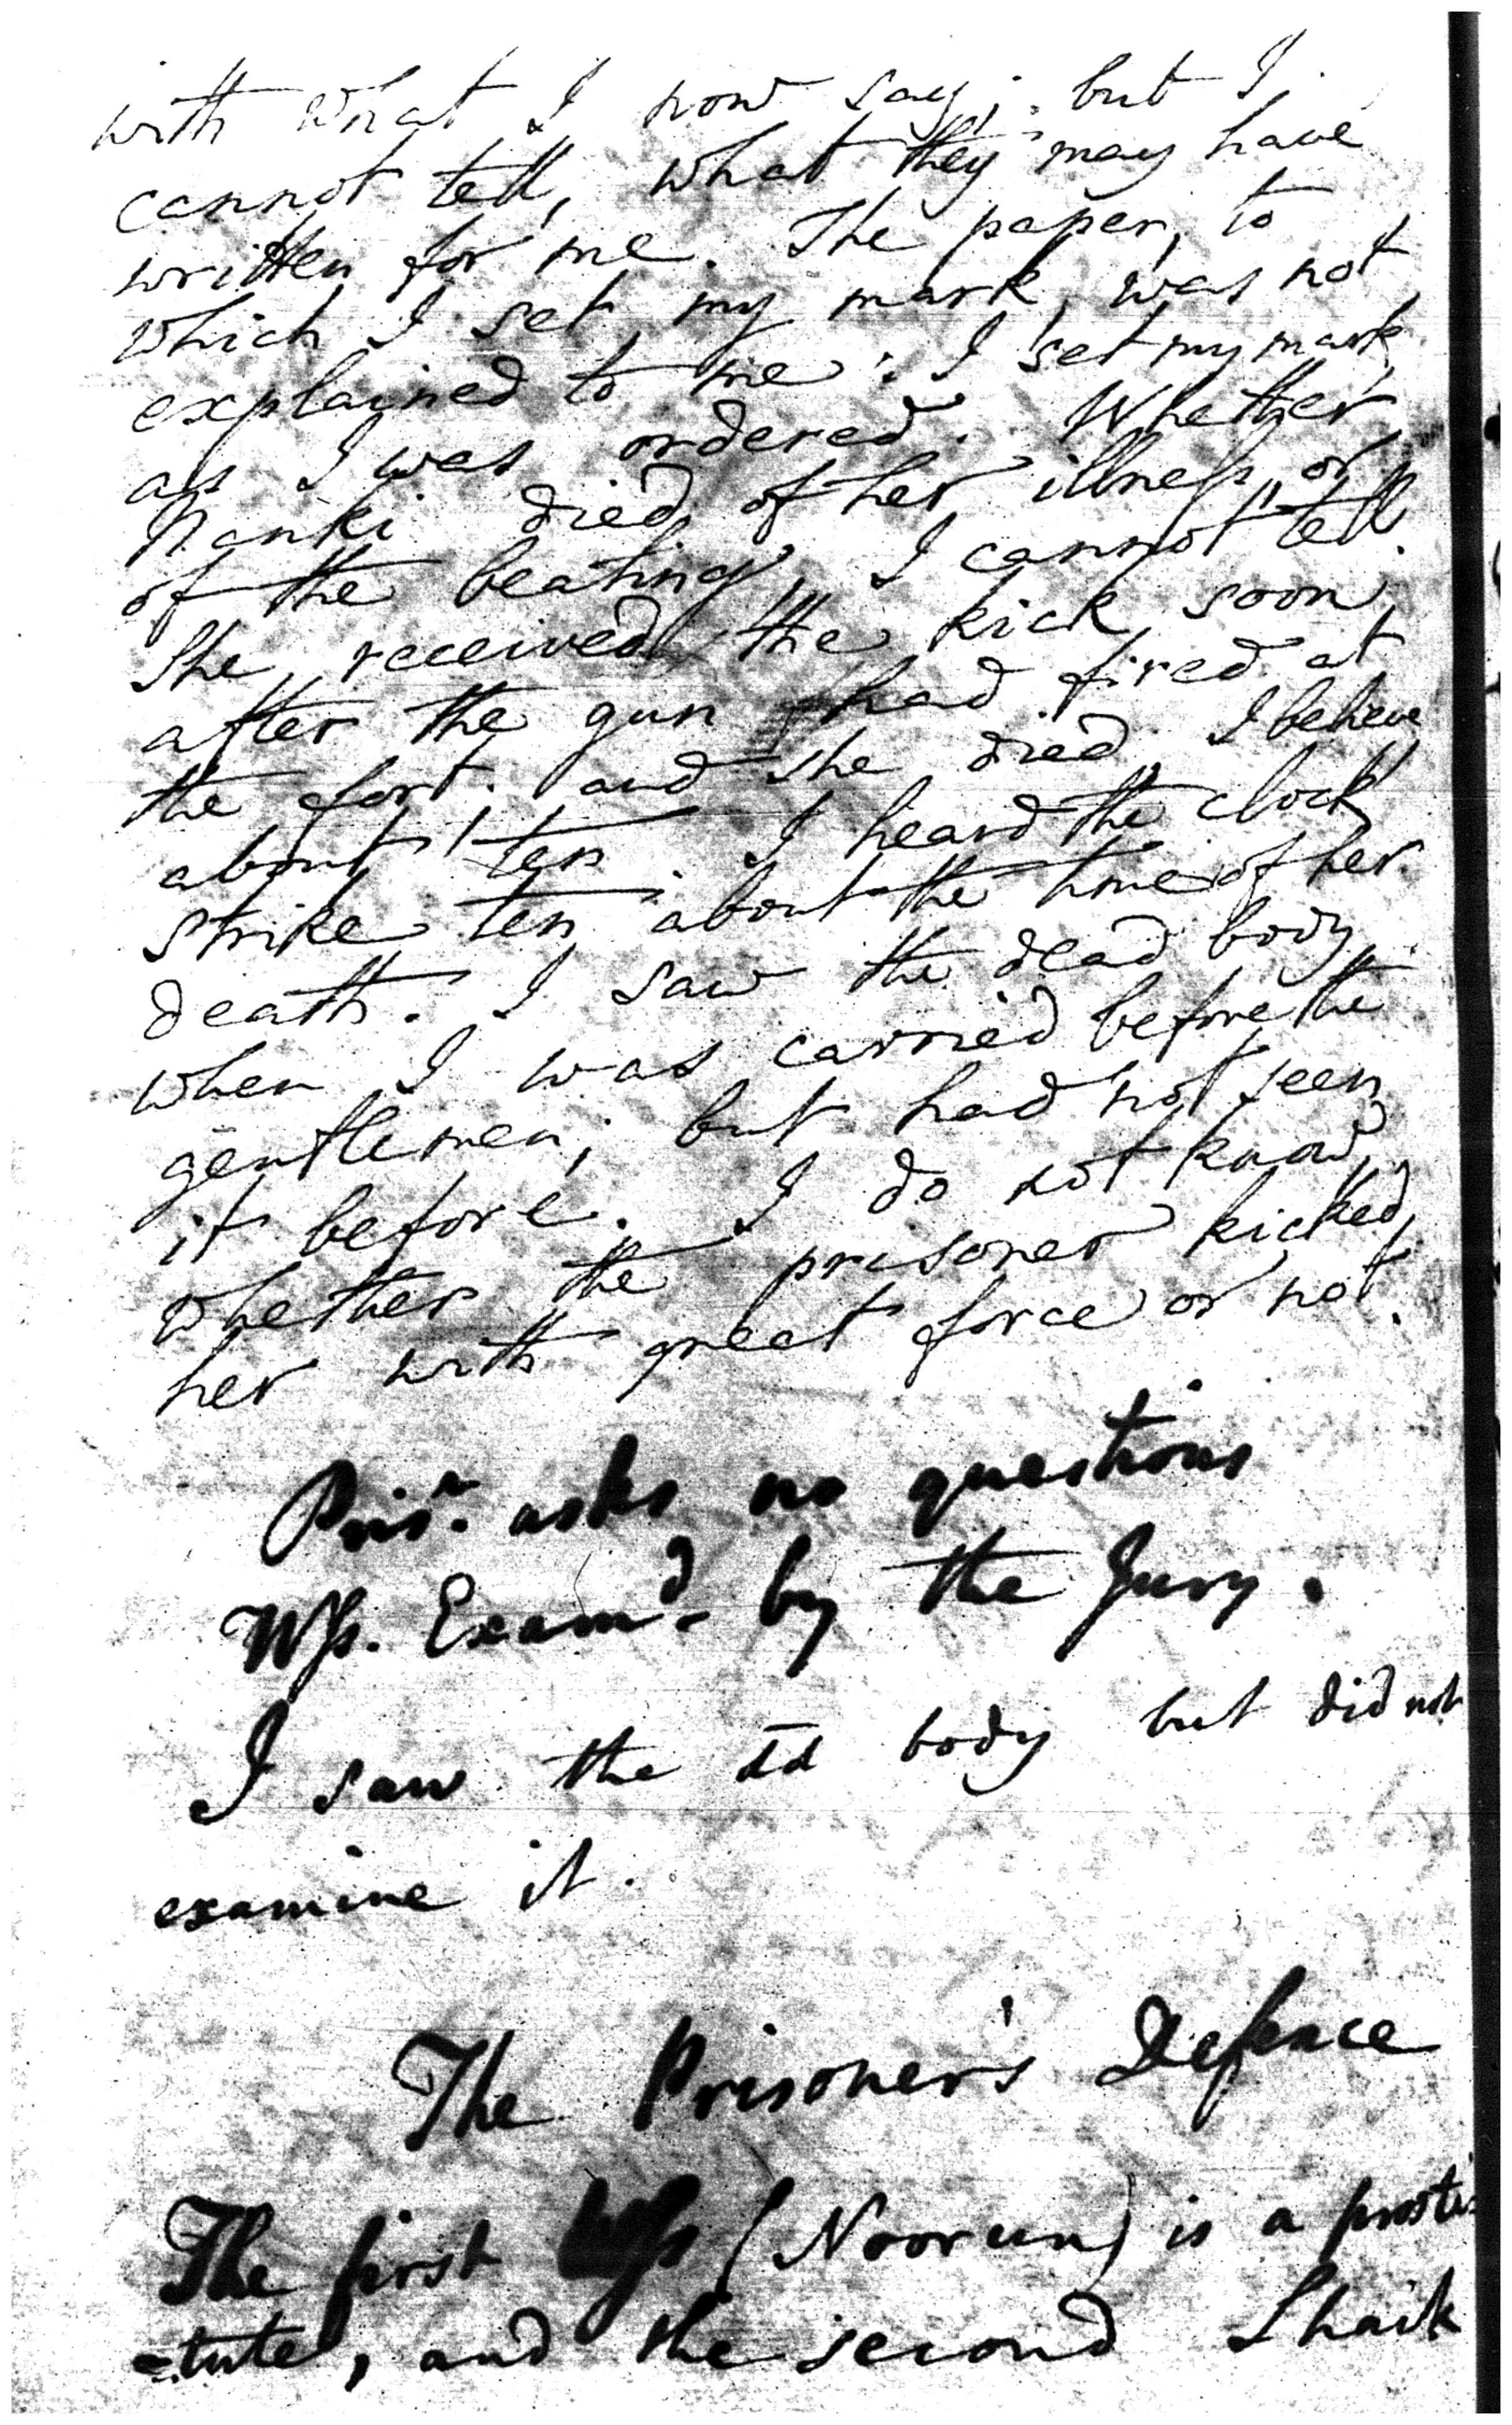 with what I now say; but I
cannot tell, what they may have
written for me. The paper, to
which I set my mark, was not
explained to me: I set my mark
as I was ordered. Whether
Nanki died of her illness, or
of the beating, I cannot tell.
She received the kick soon
after the gun had fired at
the fort; and she died I believe
about ten. I heard the clock
strike ten about the time of her
death. I saw the dead body,
when I was carried before the
gentlemen; but had not seen
it before. I do not know,
whether the prisoner kicked
her with great force or not.
Prisr. asks no questions
Wss. Examd. by the Jury.
I saw the dd body but did not
examine it.
The Prisoner's Defence
The first Wss (Noorun) is a prosti=
=tute, and the second Shaik